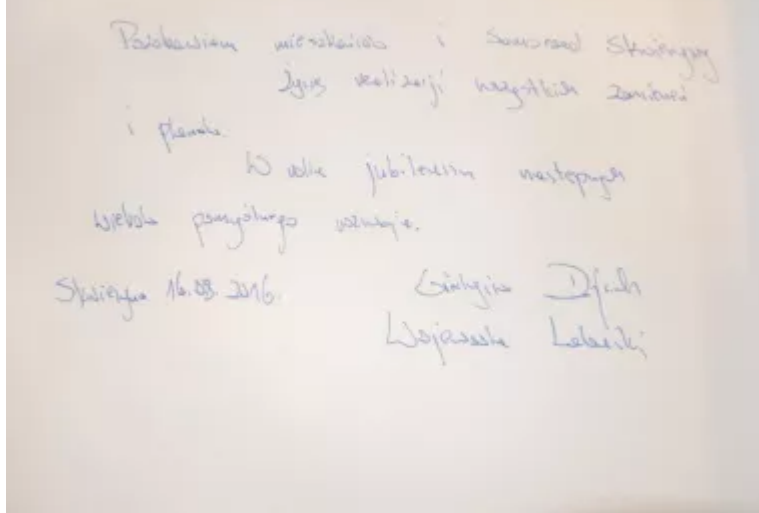 Pozdrawiam mieszkańców i Samorząd Skwierzyny
Życzę realizacji wszystkich zamierzeń
i planów.
W roku jubileuszu następnych
wieków pomyślnego rozwoju.
Skwierzyna 16.09.2016.
Dajczak
Wojewoda Lubuski